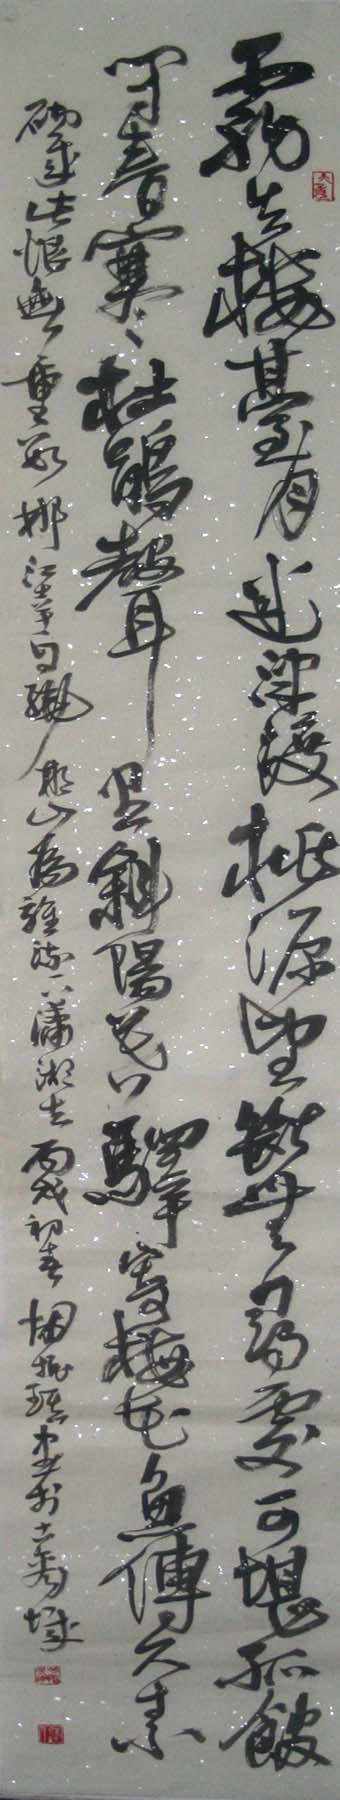 霧失樓臺月迷津渡桃源望斷無尋處可堪孤館
閉春寒杜鵑聲里斜陽暮驛寄梅花魚傳尺素
砌成此恨無重數郴江幸自繞郴山為誰流下瀟湘去丙戌初春書於